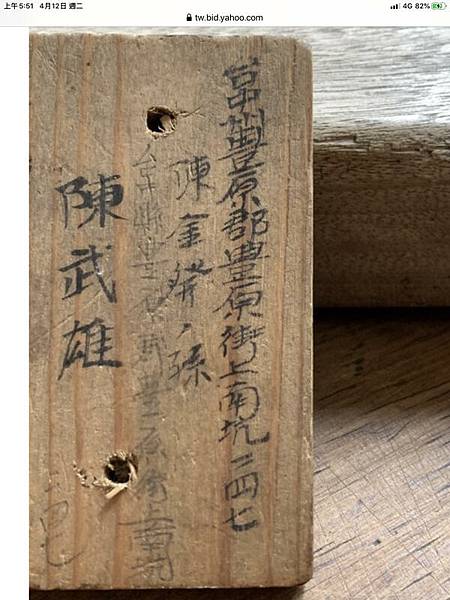 上午5:51 4月12日 週二
tw.bid.yahoo.com
4G 82%
台中州豊原郡豊原街上南坑二四七
陳金發ノ孫
豊原街上南坑
陳武雄